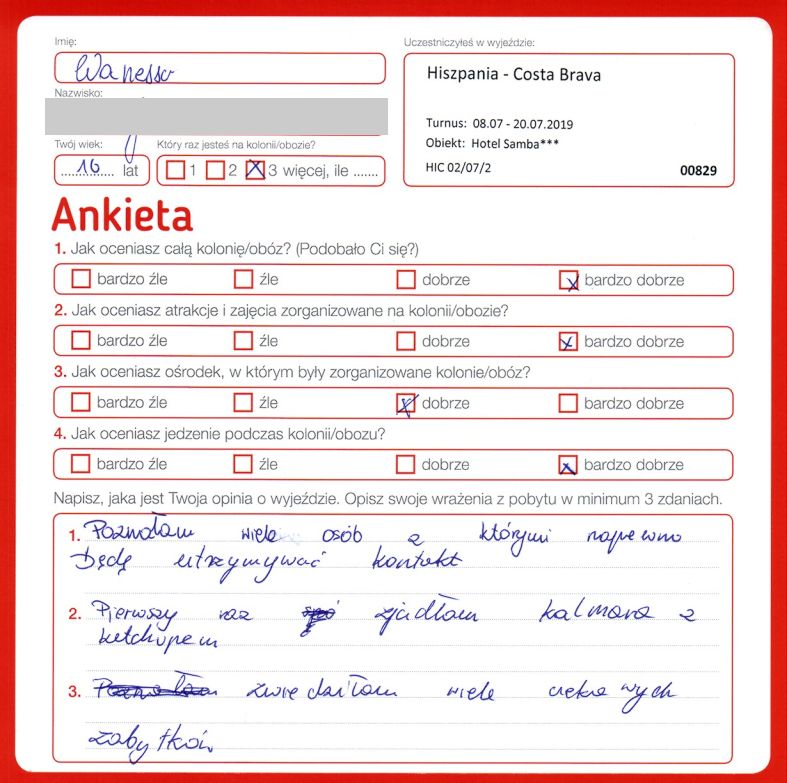 Imię:
Uczestniczyłeś w wyjeździe:
Wanessa
Hiszpania - Costa Brava
Nazwisko:
Turnus: 08.07 - 20.07.2019
Obiekt: Hotel Samba***
HIC 02/07/2 00829
Twój wiek: Który raz jesteś na kolonii/obozie?
16 lat 1 2 3 więcej, ile .......
Ankieta
1. Jak oceniasz całą kolonię/obóz? (Podobało Ci się?)
bardzo źle źle dobrze bardzo dobrze
2. Jak oceniasz atrakcje i zajęcia zorganizowane na kolonii/obozie?
bardzo źle źle dobrze bardzo dobrze
3. Jak oceniasz ośrodek, w którym były zorganizowane kolonie/obóz?
bardzo źle źle dobrze bardzo dobrze
4. Jak oceniasz jedzenie podczas kolonii/obozu?
bardzo źle źle dobrze bardzo dobrze
Napisz, jaka jest Twoja opinia o wyjeździe. Opisz swoje wrażenia z pobytu w minimum 3 zdaniach.
1. Poznałam wiele osób z którymi napewno
będę utrzymywać kontakt
2. Pierwszy raz zjadłam kalmara z
ketchupem
3. zwiedziłam wiele ciekawych
zabytków